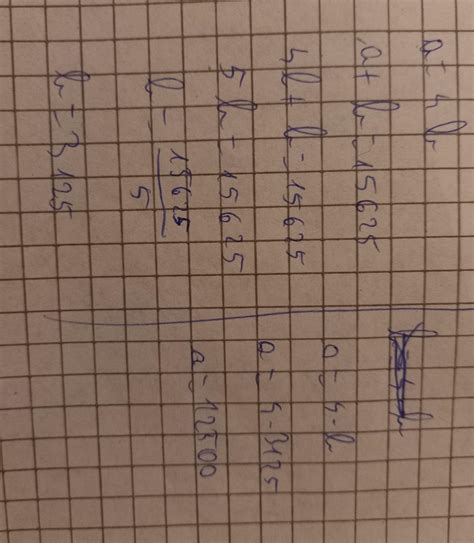 a = 4b
a + b = 15625
4b + b = 15625
5b = 15625
b = 15625
5
b = 3125
a = 4 · b
a = 4 · 3125
a = 12500